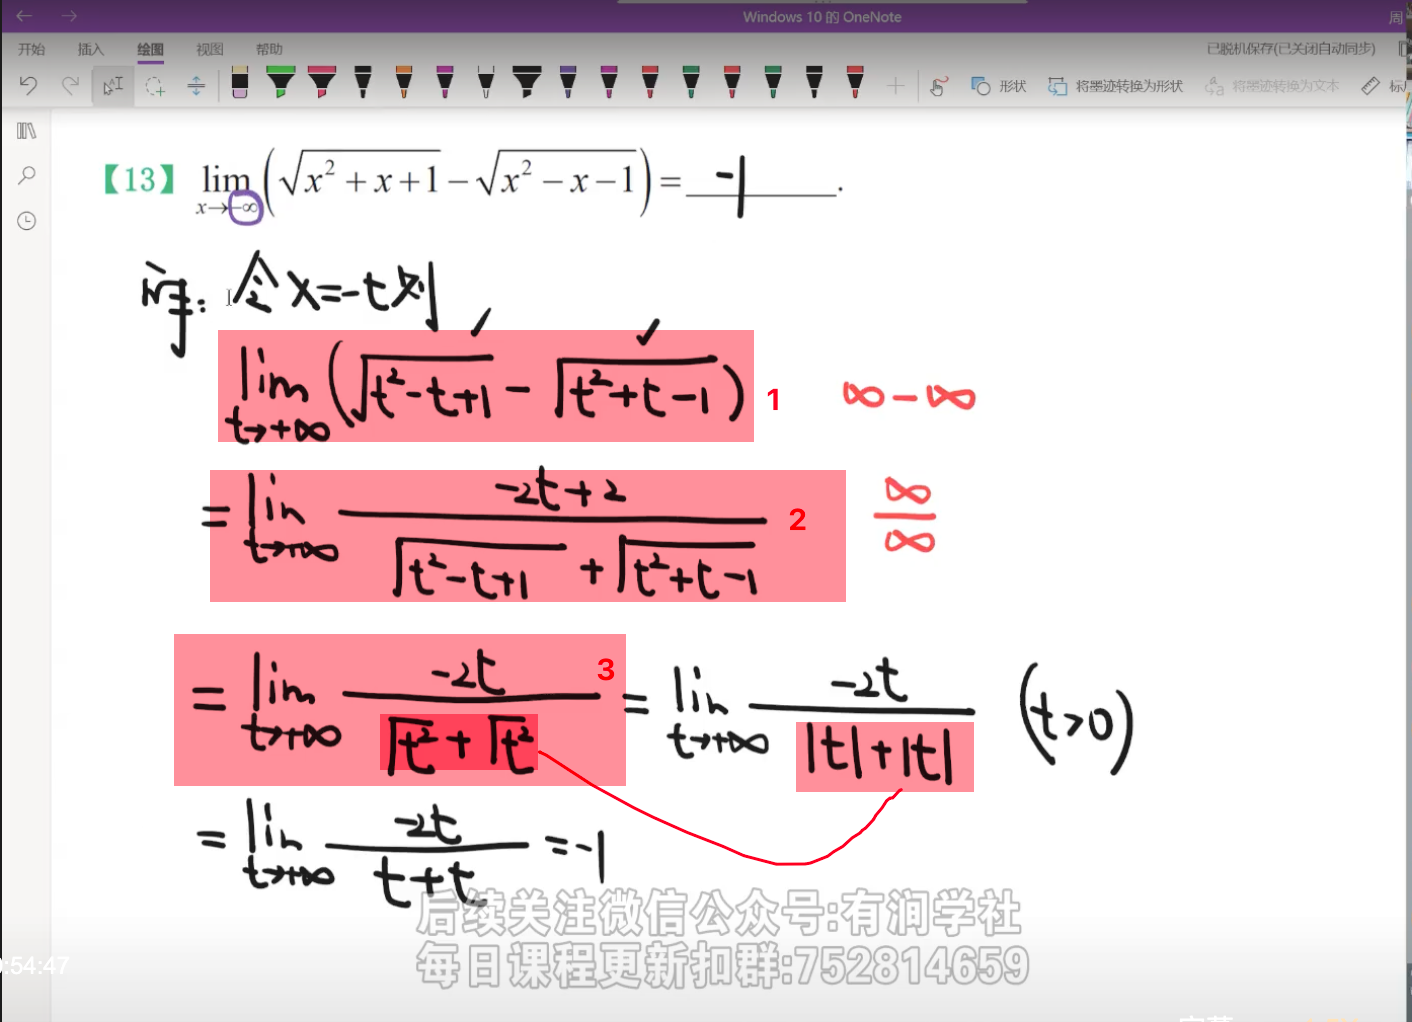 Windows 10 的 OneNote
周
开始 插入 绘图 视图 帮助
已脱机保存(已关闭自动同步)
形状 将墨迹转换为形状 将墨迹转换为文本
【13】 lim x→-∞ (√(x² + x + 1) − √(x² − x − 1)) = -1 .
解: 令 x=-t 则
lim t→+∞ (√(t²-t+1) - √(t²+t-1)) 1 ∞-∞
= lim t→+∞ (-2t+2)/(√(t²-t+1) + √(t²+t-1)) 2 ∞/∞
= lim t→+∞ -2t/(√t² + √t²) 3 = lim t→+∞ -2t/(|t|+|t|) (t>0)
= lim t→+∞ -2t/(t+t) = -1
后续关注微信公众号:有润学社
每日课程更新扣群:752814659
:54:47